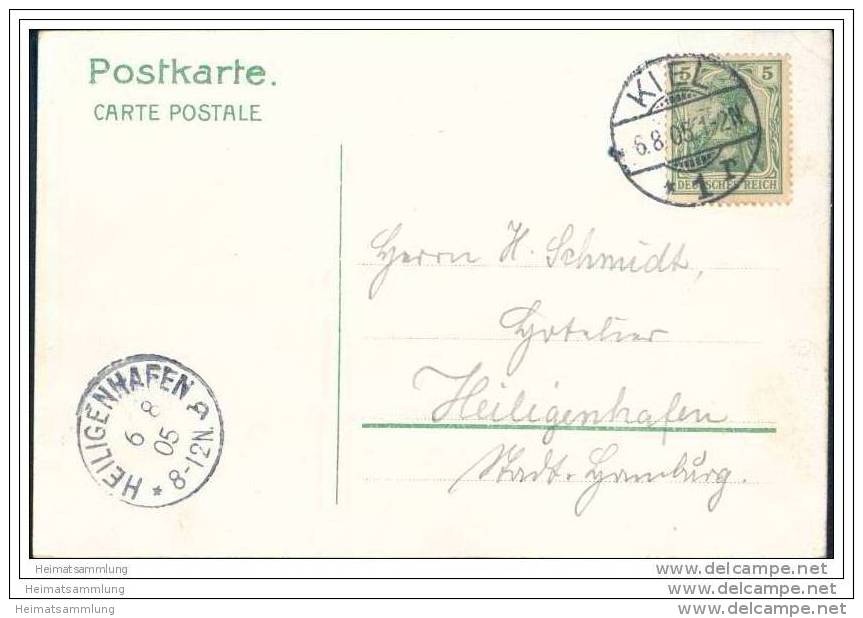 Postkarte.
CARTE POSTALE
5 5
DEUTSCHES REICH
KIEL
6.8.05.1-2N
* 1 r
Herrn H. Schmidt,
Hotelier
Heiligenhafen
Stadt-Hamburg.
HEILIGENHAFEN
6 8
05
* 8-12N
Heimatsammlung
www.delcampe.net
Heimatsammlung
www.delcampe.net
Heimatsammlung
www.delcampe.net